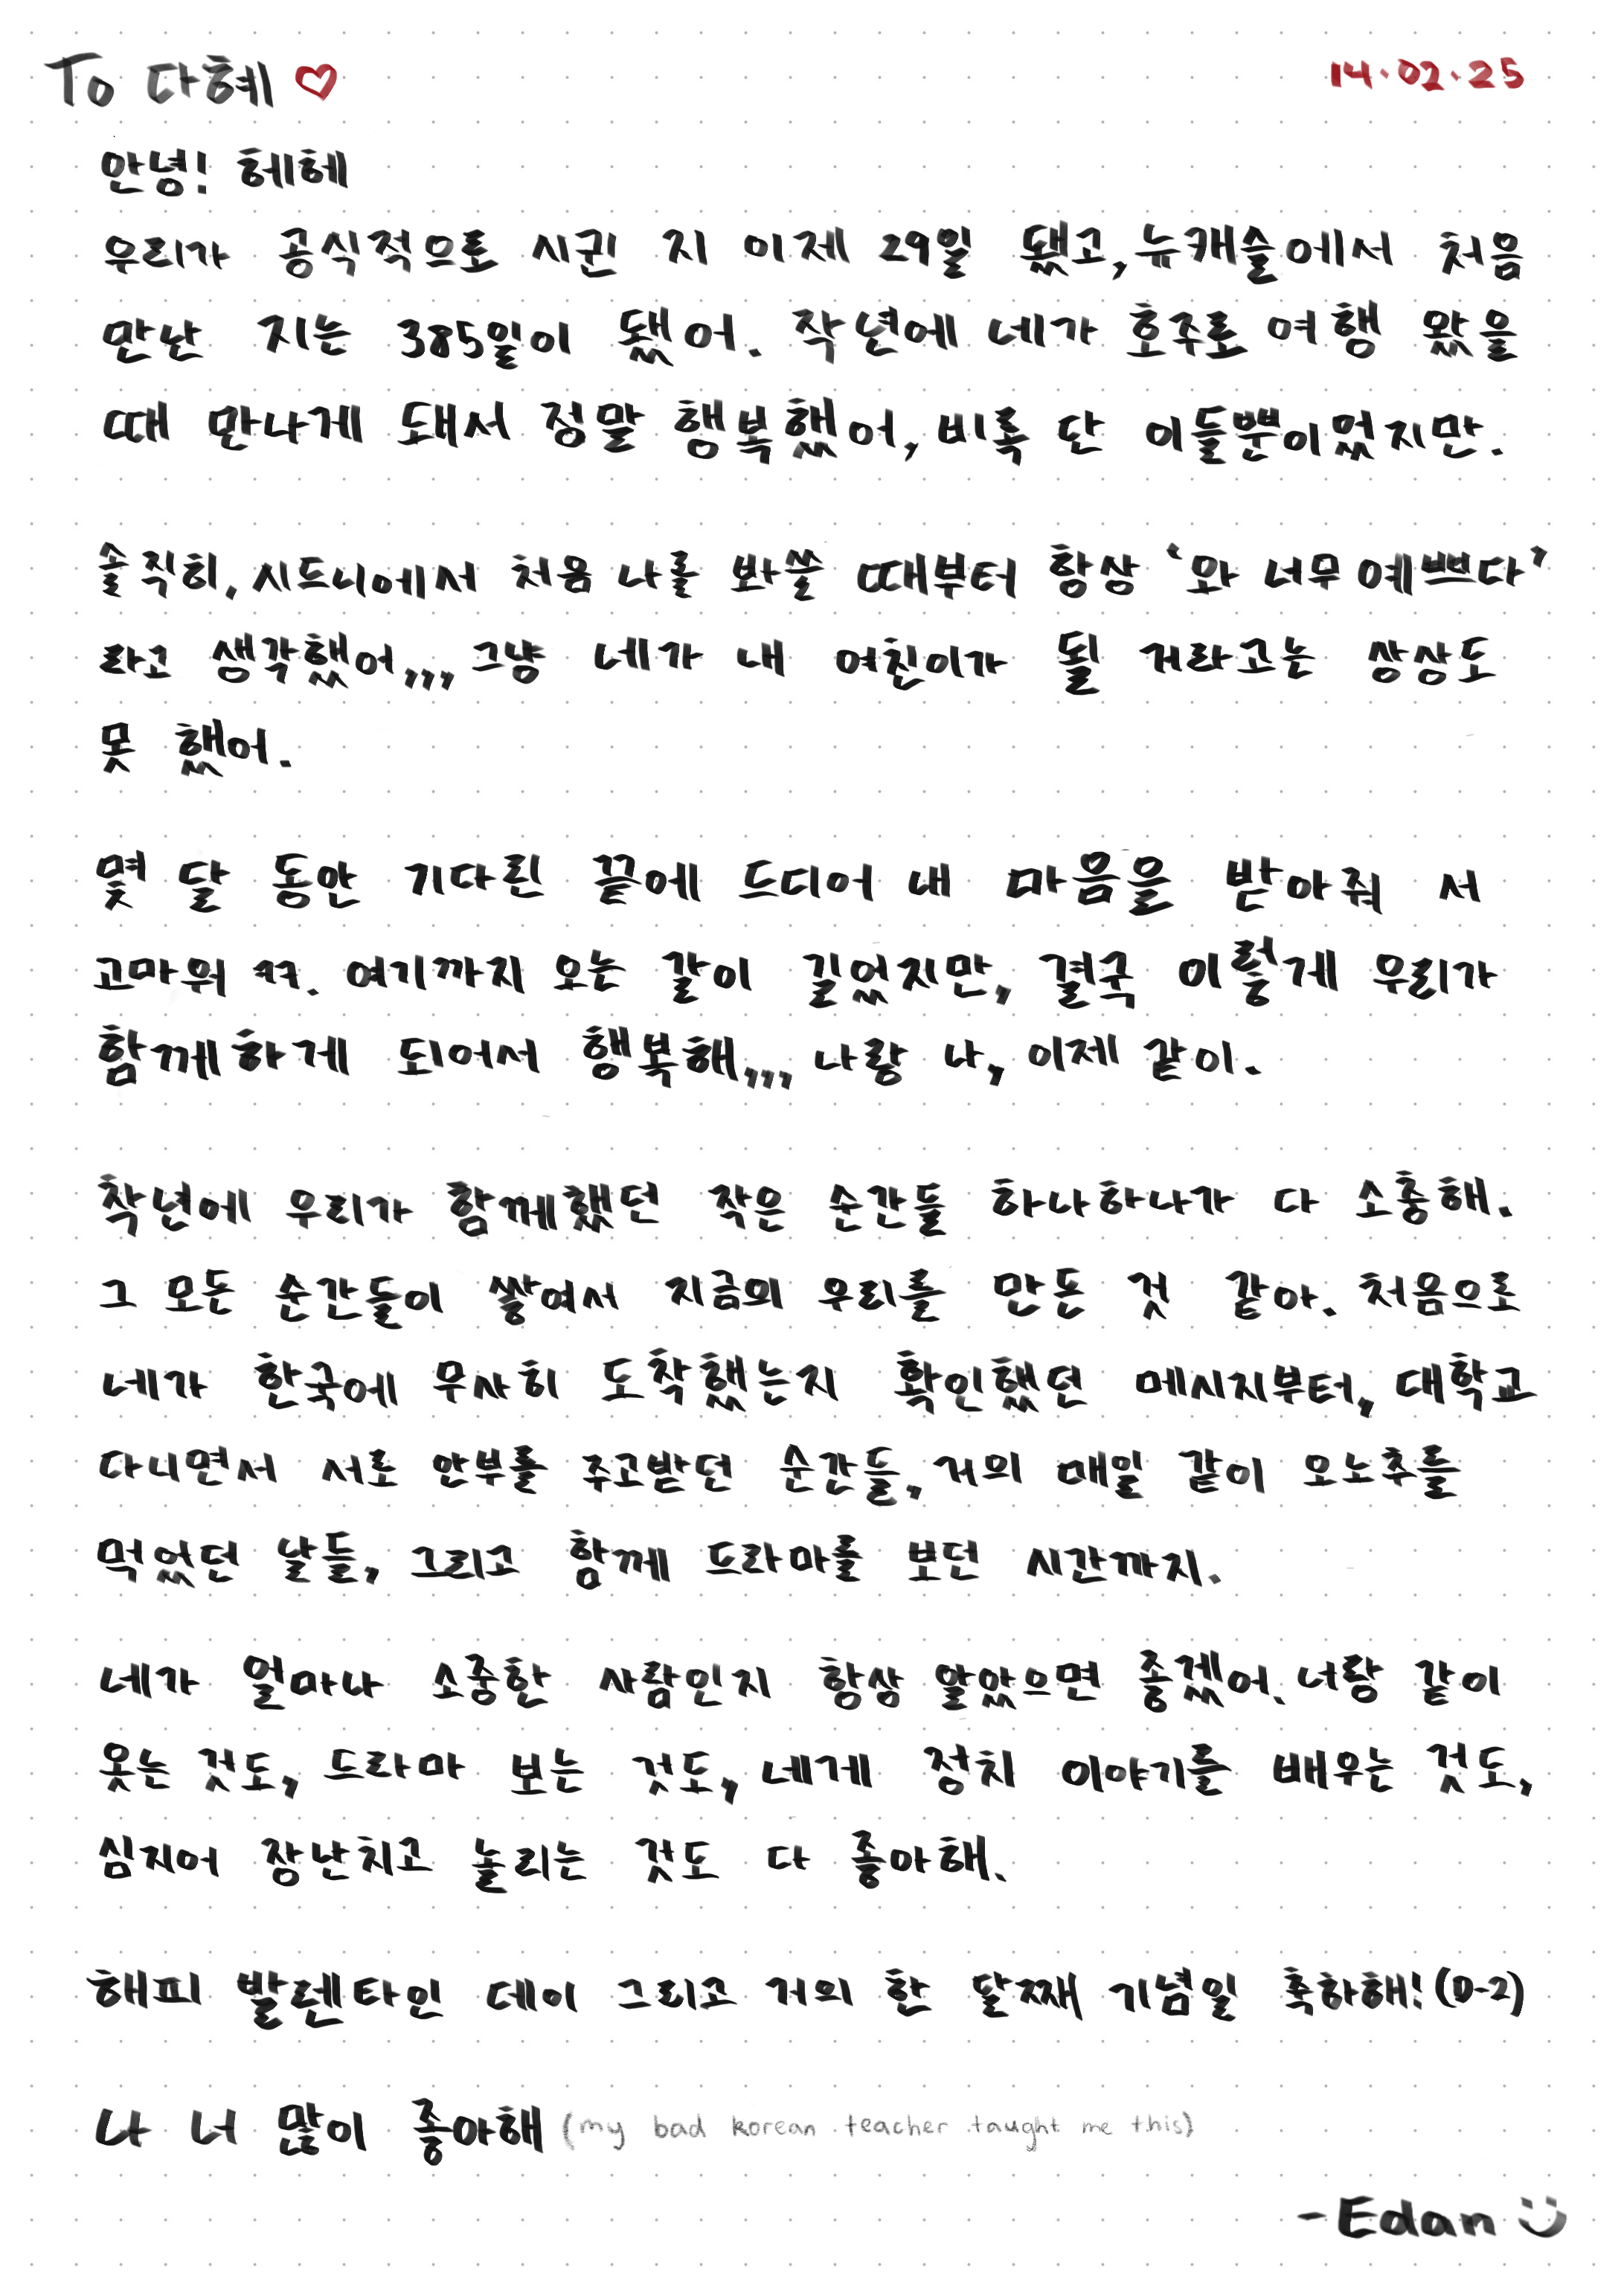 To 다혜 ♡
14.02.25
안녕! 헤헤
우리가 공식적으로 시귄 지 이제 29일 됐고, 뉴캐슬에서 처음
만난 지는 385일이 됐어. 작년에 네가 호주로 여행 왔을
때 만나게 돼서 정말 행복했어, 비록 단 이틀뿐이었지만.
솔직히, 시드니에서 처음 나를 봐쓸 때부터 항상 '와 너무 예쁘다'
라고 생각했어,,, 그냥 네가 내 여친이가 될 거라고는 상상도
못 했어.
몇 달 동안 기다린 끝에 드디어 내 마음을 받아줘 서
고마워 ㅋㅋ. 여기까지 오는 갈이 길었지만, 결국 이렇게 우리가
함께하게 되어서 행복해,,, 나랑 나, 이제 같이.
작년에 우리가 함께했던 작은 순간들 하나하나가 다 소중해.
그 모든 순간들이 쌓여서 지금의 우리를 만든 것 같아. 처음으로
네가 한국에 무사히 도착했는지 확인했던 메시지부터, 대학교
다니면서 서로 안부를 주고받던 순간들, 거의 매일 같이 오노추를
먹었던 날들, 그리고 함께 드라마를 보던 시간까지.
네가 얼마나 소중한 사람인지 항상 알았으면 좋겠어. 너랑 같이
웃는 것도, 드라마 보는 것도, 네게 정치 이야기를 배우는 것도,
심지어 장난치고 놀리는 것도 다 좋아해.
해피 발렌타인 데이 그리고 거의 한 달째 기념일 축하해! (D-2)
나 너 많이 좋아해 (my bad korean teacher taught me this)
- Edan